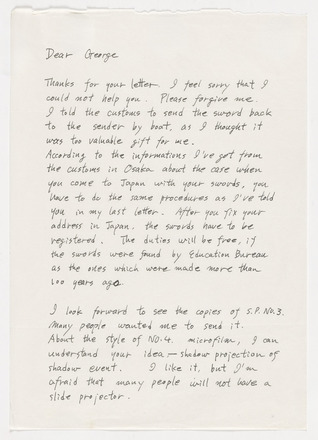 Dear George
Thanks for your letter. I feel sorry that I
could not help you. Please forgive me.
I told the customs to send the sword back
to the sender by boat, as I thought it
was too valuable gift for me.
According to the informations I've got from
the customs in Osaka about the case when
you come to Japan with your swords, you
have to do the same procedures as I've told
you in my last letter. After you fix your
address in Japan, the swords have to be
registered. The duties will be free, if
the swords were found by Education Bureau
as the ones which were made more than
100 years ago.
I look forward to see the copies of S.P. No.3.
Many people wanted me to send it.
About the style of NO.4. microfilm, I can
understand your idea — shadow projection of
shadow event. I like it, but I'm
afraid that many people will not have a
slide projector.